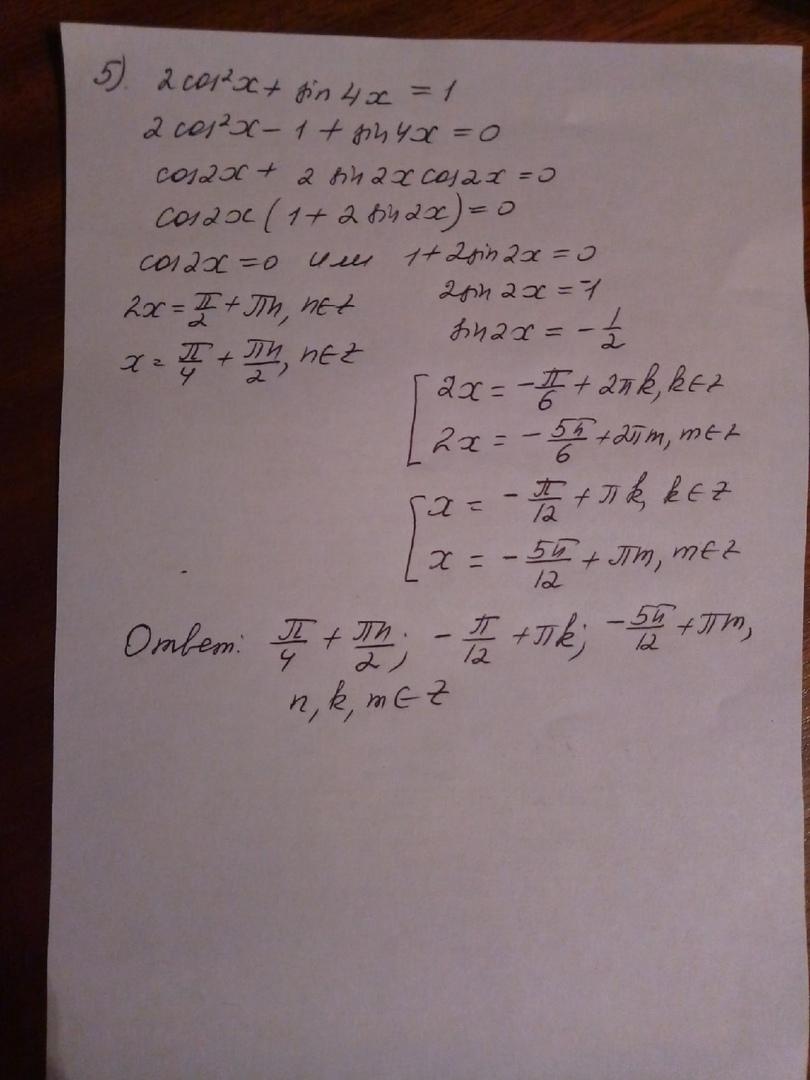 5) 2cos²x + sin 4x = 1
2cos²x - 1 + sin 4x = 0
cos2x + 2 sin 2x cos 2x = 0
cos2x (1 + 2 sin 2x) = 0
cos 2x = 0 или 1 + 2sin 2x = 0
2x = π/2 + πn, n∈Z 2sin 2x = -1
x = π/4 + πn/2, n∈Z sin 2x = -1/2
[ 2x = -π/6 + 2πk, k∈Z
2x = -5π/6 + 2πm, m∈Z
[ x = -π/12 + πk, k∈Z
x = -5π/12 + πm, m∈Z
Ответ: π/4 + πn/2; -π/12 + πk; -5π/12 + πm,
n, k, m∈Z